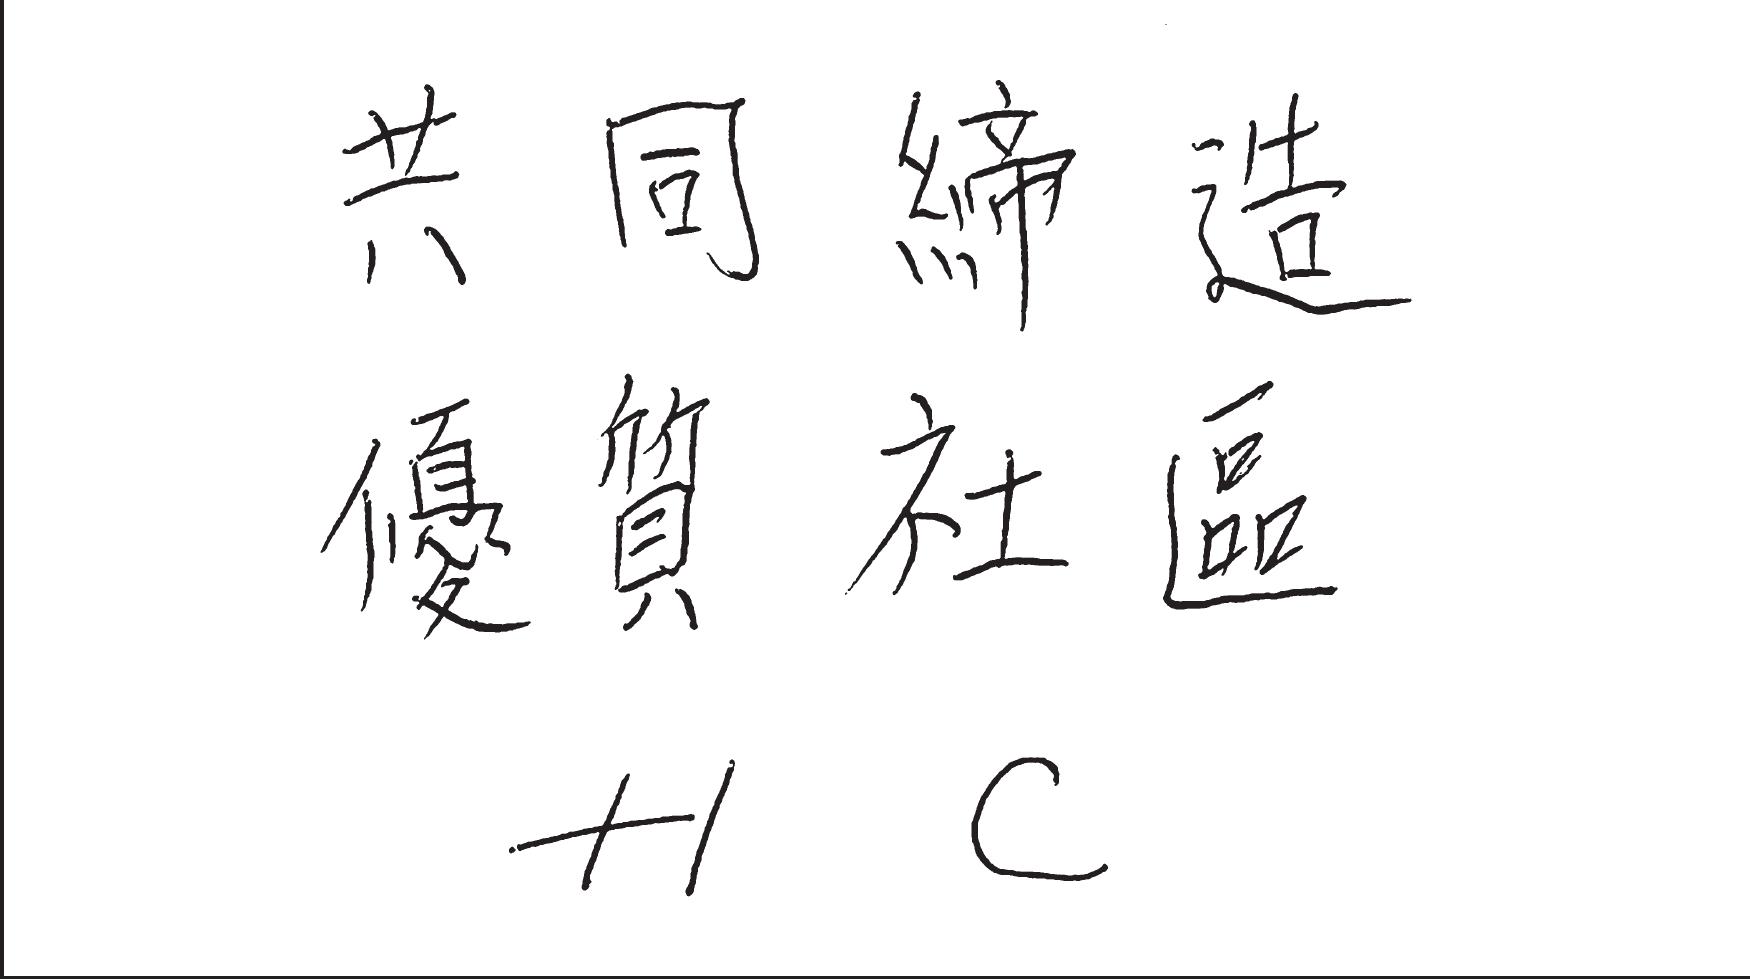 共同締造
優質社區
H C